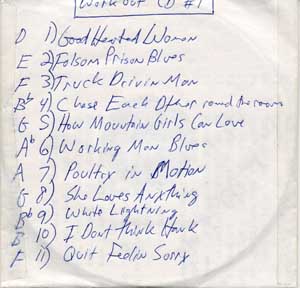 Work out CD #1
D 1) Good Hearted Woman
E 2) Folsom Prison Blues
F 3) Truck Drivin Man
Bb 4) Chase Each Other round the room
G 5) How Mountain Girls Can Love
Ab 6) Working Man Blues
A 7) Poultry in Motion
G 8) She Loves Anything
Bb 9) White Lightning
10) I Dont Think Hank
F 11) Quit Feelin Sorry